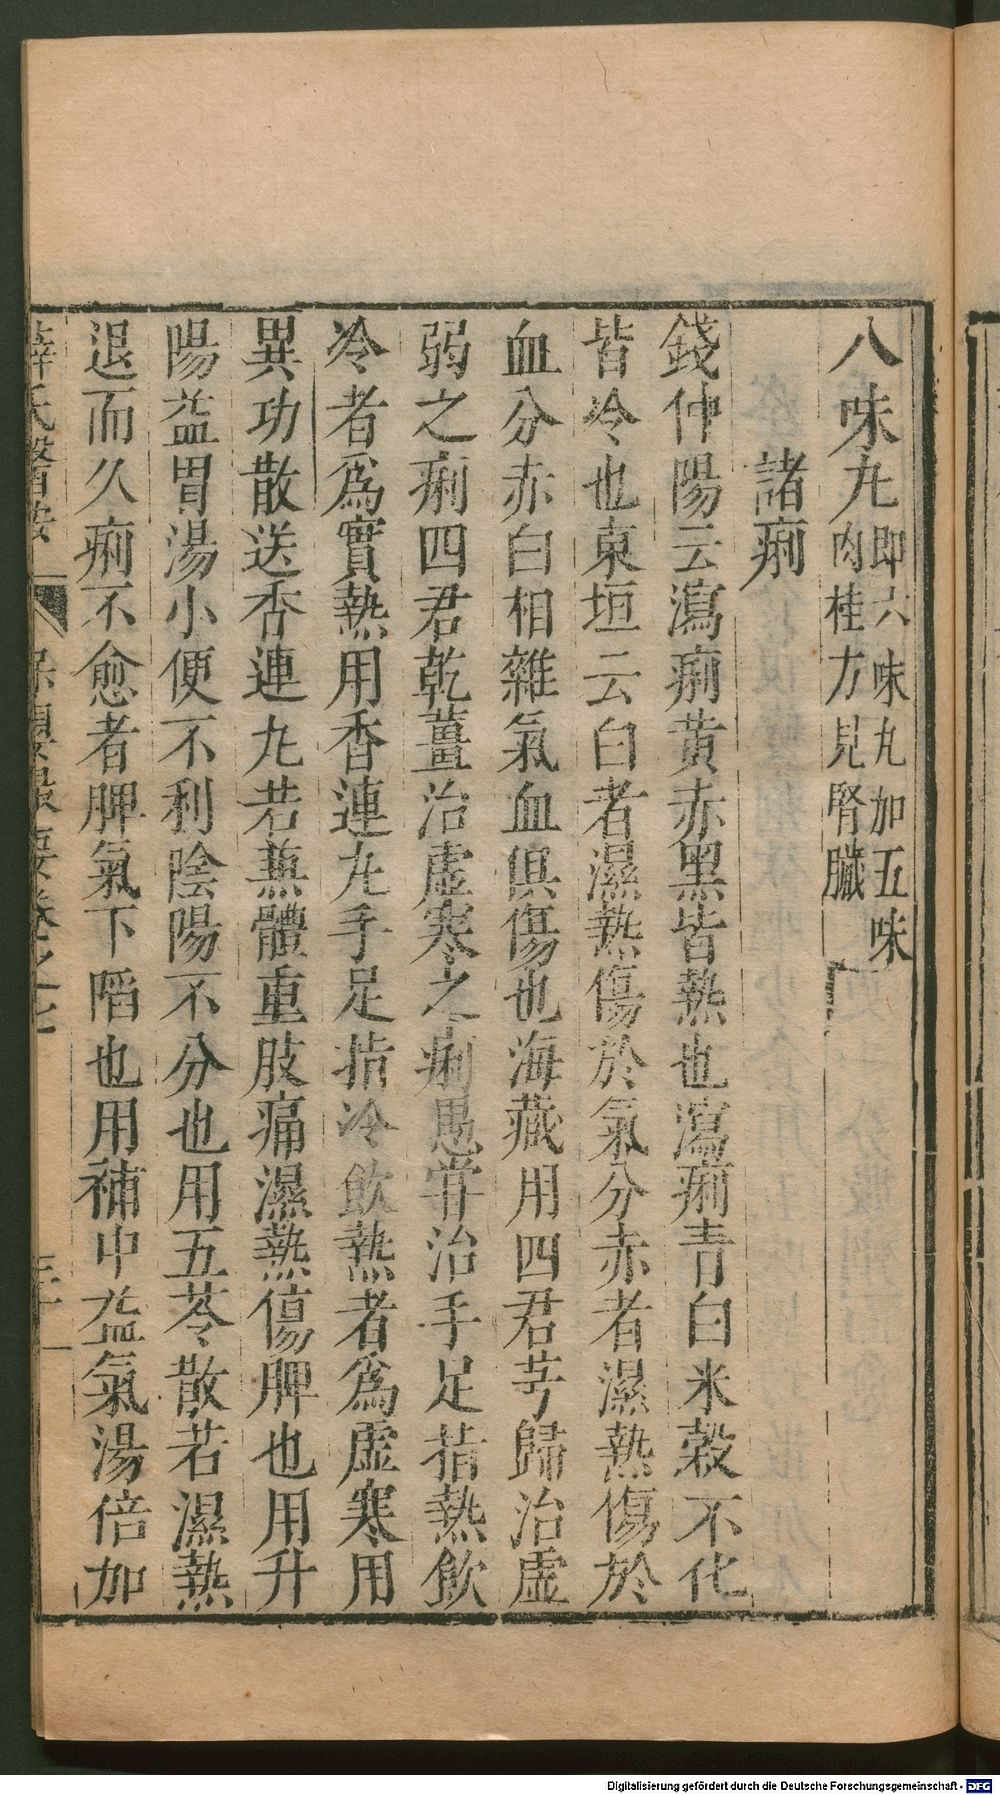 八味丸即六味丸加五味
肉桂方見腎臟
諸痢
錢仲陽云瀉痢黃赤黑皆熱也瀉痢青白米穀不化
皆冷也東垣云白者濕熱傷於氣分赤者濕熱傷於
血分赤白相雜氣血俱傷也海藏用四君芎歸治虛
弱之痢四君乾薑治虛寒之痢愚嘗治手足指熱飲
冷者爲實熱用香連丸手足指冷飲熱者爲虛寒用
異功散送香連丸若兼體重肢痛濕熱傷脾也用升
陽益胃湯小便不利陰陽不分也用五苓散若濕熱
退而久痢不愈者脾氣下陷也用補中益氣湯倍加
薛氏醫按 保嬰撮要卷之七
Digitalisierung gefördert durch die Deutsche Forschungsgemeinschaft - DFG